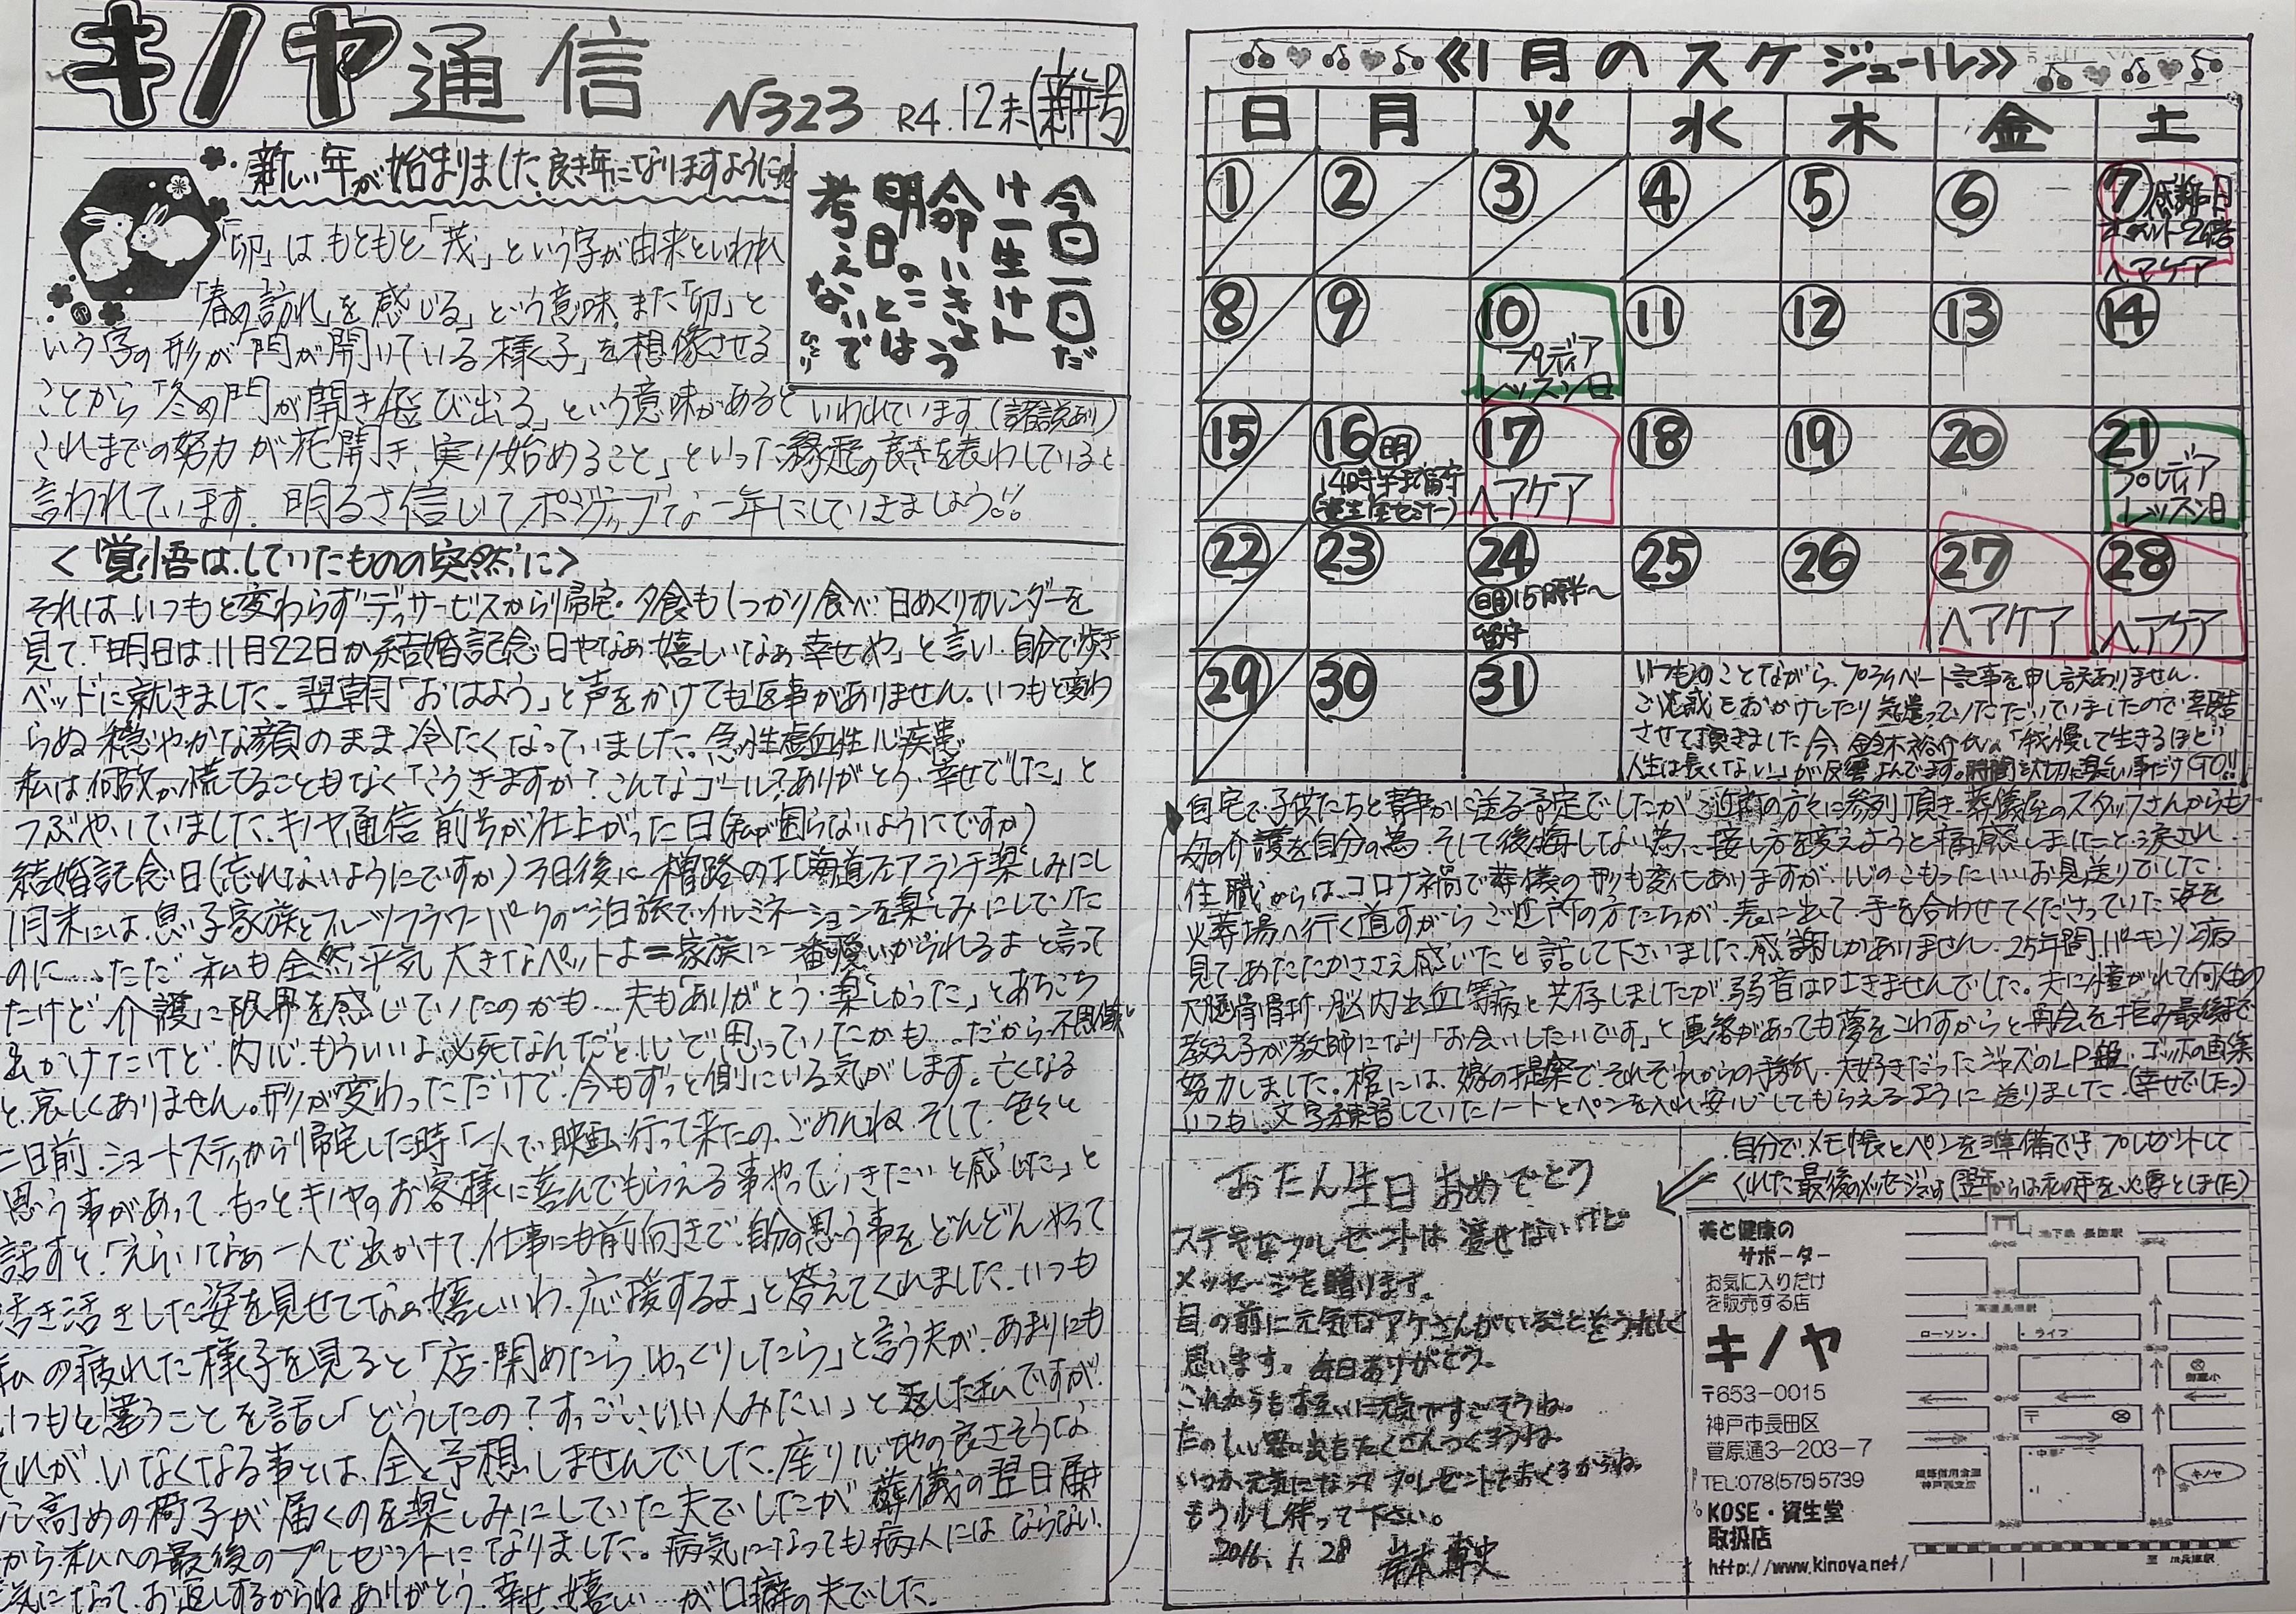 キノヤ通信 N323 R4.12末(新年号)
新しい年が始まりました 良き年になりますように
「卯」はもともと「茂」という字が由来といわれ
「春の訪れ」を感じる」という意味 また「卯」と
いう字の形が「門が開いている様子」を想像させる
ことから「冬の門が開き飛び出る」という意味があるといわれています(諸説あり)
これまでの努力が花開き、実り始めること」といった縁起の良さを表わしていると
言われています. 明るさ信じてポジティブな一年にしていきましょう!!
今日一日だ
け一生けん
命いきよう
明日のことは
考えないで
ひとり
<覚悟はしていたものの突然に>
それは いつもと変わらず デイサービスから帰宅・夕食もしっかり食べ 日めくりカレンダーを
見て「明日は11月22日か結婚記念日やなぁ 嬉しいなぁ 幸せや」と言い 自分で歩き
ベッドに就きました. 翌朝「おはよう」と声をかけても返事がありません. いつもと変わ
らぬ穏やかな顔のまま 冷たくなっていました。急性虚血性心疾患
私は何故か慌てることもなく「こうきますか?こんなゴール?ありがとう 幸せでした」と
つぶやいていました. キノヤ通信前号が仕上がった日(私が困らないようにですか)
結婚記念日(忘れないようにですか)3日後に 楽しみにし
1月末には 息子家族とフルーツフラワーパークの一泊旅でイルミネーションを楽しみにしていた
のに…ただ 私も全然平気 大きなペットよ=家族に一番 がられるよ と言って
たけど 介護に限界を感じていたのかも… 夫も「ありがとう 楽しかった」とあちこち
出かけたけど 内心 もういいよ 必死なんだと心で思っていたかも… だから 不思議
と哀しくありません。形が変わっただけで 今もずっと側にいる気がします。亡くなる
二日前 ショートステイから帰宅した時「一人で映画 行って来たの ごめんね そして 色々と
思う事があって もっとキノヤのお客様に喜んでもらえる事やっていきたい と感じた」と
話すと「えらいなぁ 一人で出かけて. 仕事にも前向きで 自分の思う事を どんどん やって
活き活きした姿を見せてなぁ 嬉しいわ 応援するよ」と答えてくれました. いつも
私の疲れた様子を見ると「店閉めたら ゆっくりしたら」と言う夫が あまりにも
いつもと違うことを話し「どうしたの?すっごいいい人みたい」と返した私ですが
それが いなくなる事とは 全く予想しませんでした. 座り心地の良さそうな
高めの椅子が届くのを楽しみにしていた夫でしたが 葬儀の翌日届き
から私への最後のプレゼントになりました。病気になっても病人にはならない.
気になって お返しするからね ありがとう 幸せ 嬉しい が口癖の夫でした.
《1月のスケジュール》
日 月 火 水 木 金 土
① ② ③ ④ ⑤ ⑥ ⑦ 感謝日
ポイント2倍
ヘアケア
⑧ ⑨ ⑩ ⑪ ⑫ ⑬ ⑭
プレディア
レッスン日
⑮ ⑯ 明 ⑰ ⑱ ⑲ ⑳ ㉑
14時半まで留守
(資生堂セミナー)
ヘアケア
プレディア
レッスン日
㉒ ㉓ ㉔ ㉕ ㉖ ㉗ ㉘
明 15時半〜
留守
ヘアケア
ヘアケア
㉙ ㉚ ㉛
いつものことながら プライベート記事を申し訳ありません.
ご心配をおかけしたり 気遣っていただいていましたので 報告
させて頂きました 今 鈴木裕介氏の「我慢して生きるほど
人生は長くない」が反響よんでます。時間を大切に楽しい事だけGO!!
自宅で子供たちと静かに送る予定でしたが ご近所の方々に参列頂き 葬儀屋のスタッフさんからも
母の介護を自分の為 そして後悔しない為に接し方を変えようと痛感しましたと涙され
住職からは コロナ禍で葬儀の形も変化ありますが 心のこもったいいお見送りでした
火葬場へ行く道すがら ご近所の方たちが 表に出て 手を合わせてくださっていた姿を
見て あたたかささえ感じたと話して下さいました. 感謝しかありません. 25年間 パーキンソン病
大腿骨骨折・脳内出血等病と共存しましたが 弱音は吐きませんでした。夫に憧がれて何人もの
教え子が教師になり「お会いしたいです」と連絡があっても夢をこわすからと再会を拒み最後まで
努力しました。棺には、嫁の提案で それぞれからの手紙、大好きだったジャズのLP盤 ゴッホの画集
いつも 文字練習していたノートとペンを入れ 安心してもらえるように送りました.(幸せでした)
自分でメモ帳とペンを準備でき プレゼントして
くれた最後のメッセージです(翌年からは私の手を必要としました)
おたん生日 おめでとう
ステキなプレゼントは 渡せないけど
メッセージを贈ります。
目の前に元気なアケさんがいることをうれしく
思います。毎日ありがとう.
これからもお互いに元気ですごそうね。
たのしい思い出をたくさんつくろうね
いつか元気になって プレゼントをおくるからね.
もう少し待って下さい。
2016.1.28 岸本 真史
美と健康の
サポーター
お気に入りだけ
を販売する店
キノヤ
〒653-0015
神戸市長田区
菅原通3-203-7
TEL:078(575)5739
KOSE・資生堂
取扱店
http://www.kinoya.net/
地下鉄 長田駅
高速長田駅
ローソン・ ・ライフ
御蔵小
〒
キノヤ
至 JR兵庫駅